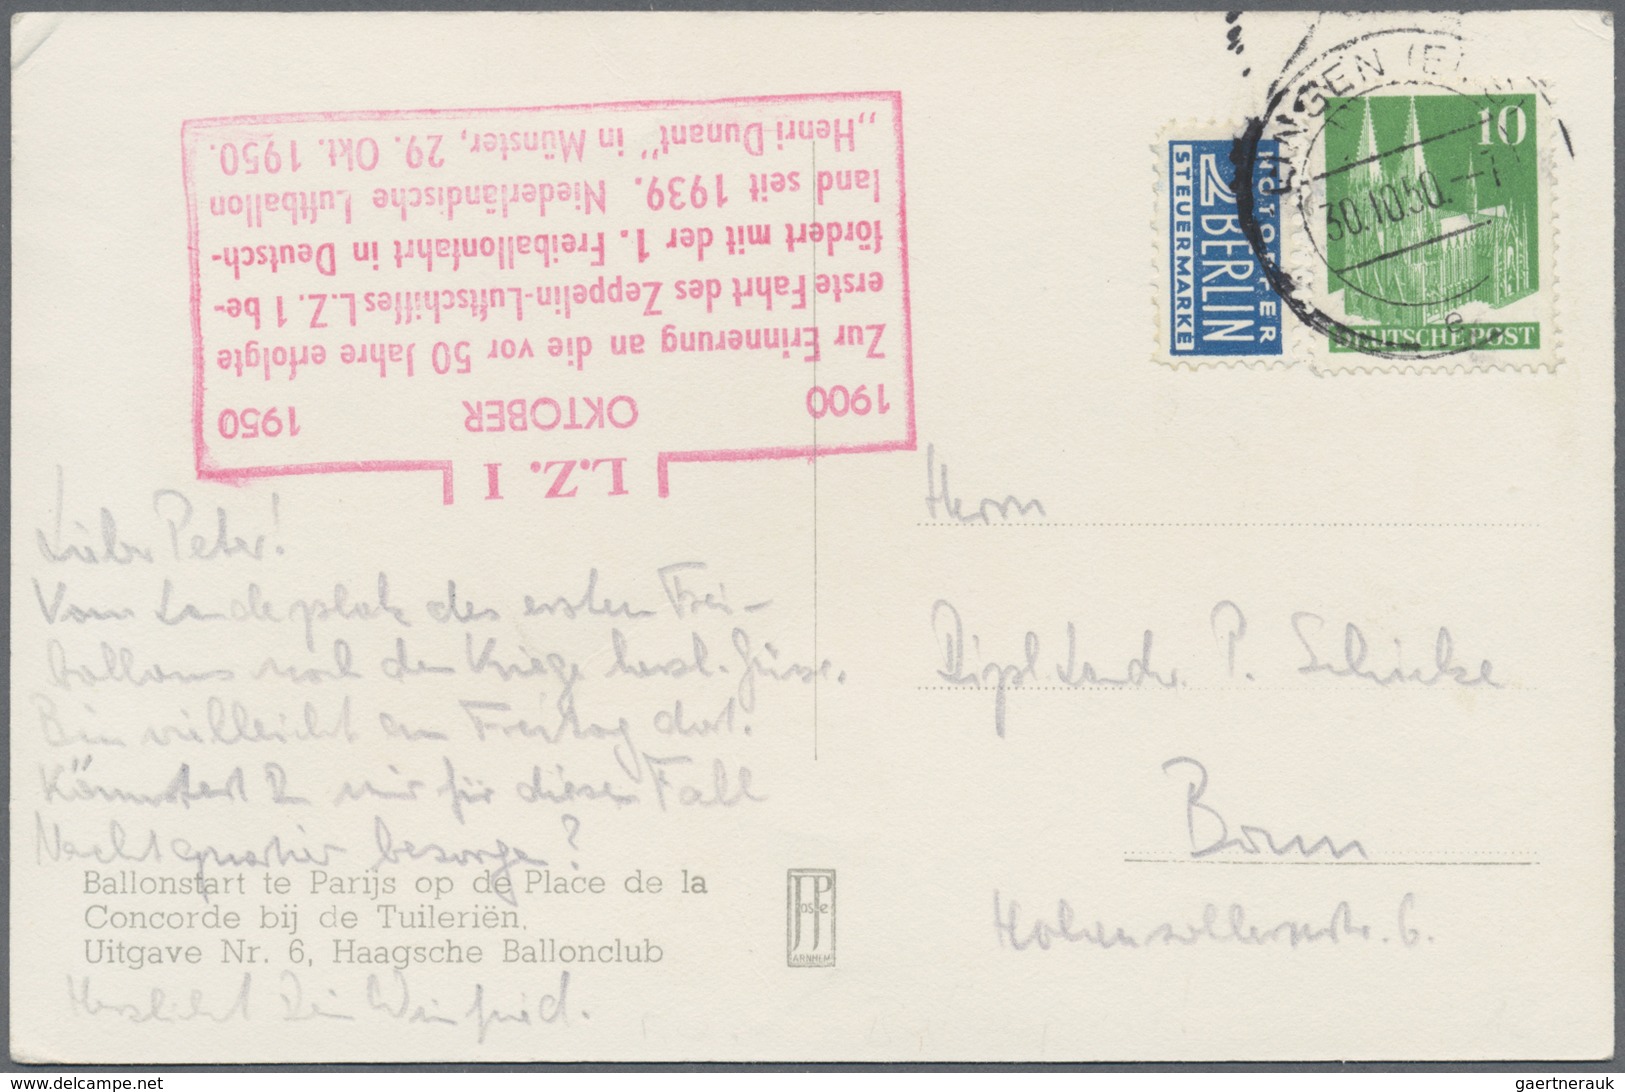 LINGEN (E
30.10.50.--1
e
10
DEUTSCHE POST
NOTOPFER
2 BERLIN
STEUERMARKE
L.Z. 1
1900 OKTOBER 1950
Zur Erinnerung an die vor 50 Jahre erfolgte
erste Fahrt des Zeppelin-Luftschiffes L.Z. 1 be-
fördert mit der 1. Freiballonfahrt in Deutsch-
land seit 1939. Niederländische Luftballon
„Henri Dunant" in Münster, 29. Okt. 1950.
Lieber Peter!
Vom Landeplatz des ersten Frei-
ballons nach dem Kriege herzl. Grüsse.
Bin vielleicht am Freitag dort.
Könntest D mir für diesen Fall
Nachtquartier besorgen?
Ballonstart te Parijs op de Place de la
Concorde bij de Tuileriën.
Uitgave Nr. 6, Haagsche Ballonclub
Herzlichst Dein Winfried.
JosPé
ARNHEM
Herrn
Dipl. Landw. P. Schicke
Bonn
Hohenzollernstr. 6.
gaertnerauk
www.delcampe.net